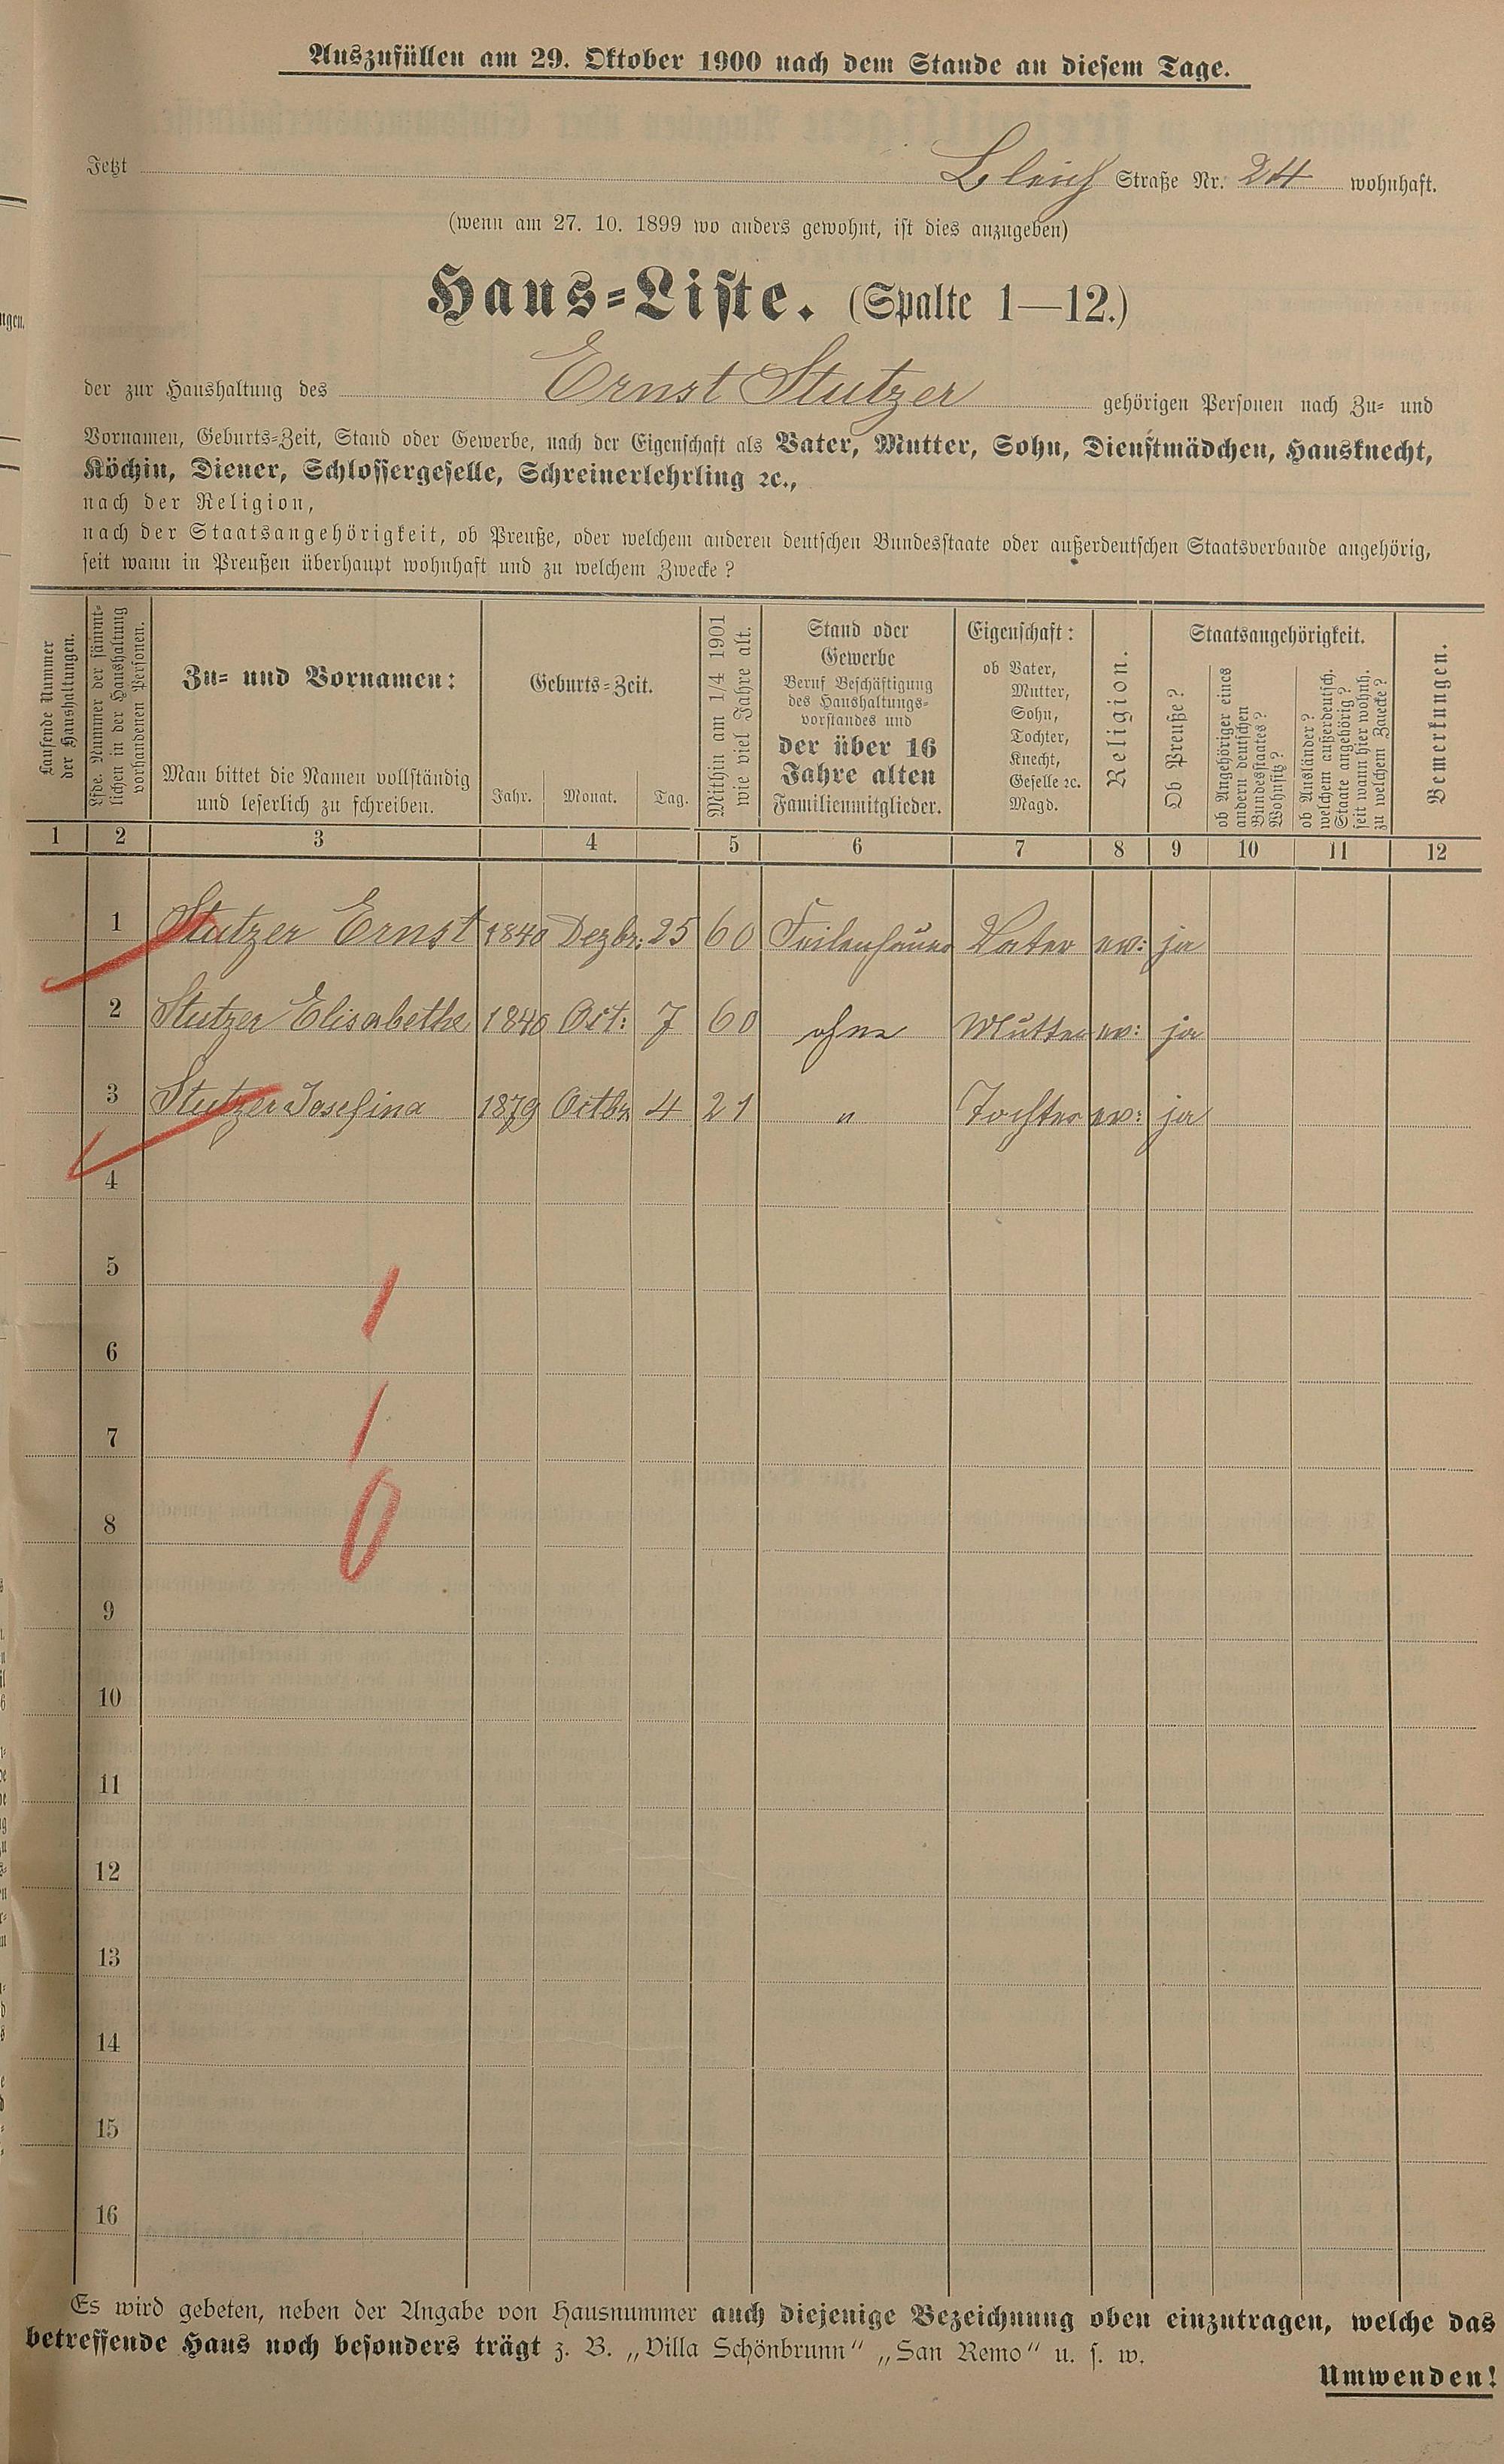 Auszufüllen am 29. Oktober 1900 nach dem Stande an diesem Tage.
Jetzt Bleich Straße Nr. 24 wohnhaft.
(wenn am 27. 10. 1899 wo anders gewohnt, ist dies anzugeben)
Haus-Liste. (Spalte 1—12.)
der zur Haushaltung des Ernst Stutzer gehörigen Personen nach Zu- und
Vornamen, Geburts-Zeit, Stand oder Gewerbe, nach der Eigenschaft als Vater, Mutter, Sohn, Dienstmädchen, Hausknecht,
Köchin, Diener, Schlossergeselle, Schreinerlehrling ꝛc.,
nach der Religion,
nach der Staatsangehörigkeit, ob Preuße, oder welchem anderen deutschen Bundesstaate oder außerdeutschen Staatsverbande angehörig,
seit wann in Preußen überhaupt wohnhaft und zu welchem Zwecke?
Laufende Nummer
der Haushaltungen.
Lfde. Nummer der sämmt-
lichen in der Haushaltung
vorhandenen Personen.
Zu- und Vornamen:
Man bittet die Namen vollständig
und leserlich zu schreiben.
Geburts-Zeit.
Jahr. Monat. Tag.
Mithin am 1/4 1901
wie viel Jahre alt.
Stand oder
Gewerbe
Beruf Beschäftigung
des Haushaltungs-
vorstandes und
der über 16
Jahre alten
Familienmitglieder.
Eigenschaft:
ob Vater,
Mutter,
Sohn,
Tochter,
Knecht,
Geselle ꝛc.
Magd.
Religion.
Staatsangehörigkeit.
Ob Preuße?
ob Angehöriger eines
andern deutschen
Bundesstaates?
Wohnsitz?
ob Ausländer?
welchem außerdeutsch.
Staate angehörig?
seit wann hier wohnh.
zu welchem Zwecke?
Bemerkungen.
1 2 3 4 5 6 7 8 9 10 11 12
1 Stutzer Ernst 1840 Dezbr: 25 60 Feilenhauer Vater ev: ja
2 Stutzer Elisabethe 1840 Oct: 7 60 ohne Mutter ev: ja
3 Stutzer Josefina 1879 Octbr 4 21 " Tochter ev: ja
4
5
1
6
7
1
8
0
9
10
11
12
13
14
15
16
Es wird gebeten, neben der Angabe von Hausnummer auch diejenige Bezeichnung oben einzutragen, welche das
betreffende Haus noch besonders trägt z. B. „Villa Schönbrunn“ „San Remo“ u. s. w.
Umwenden!